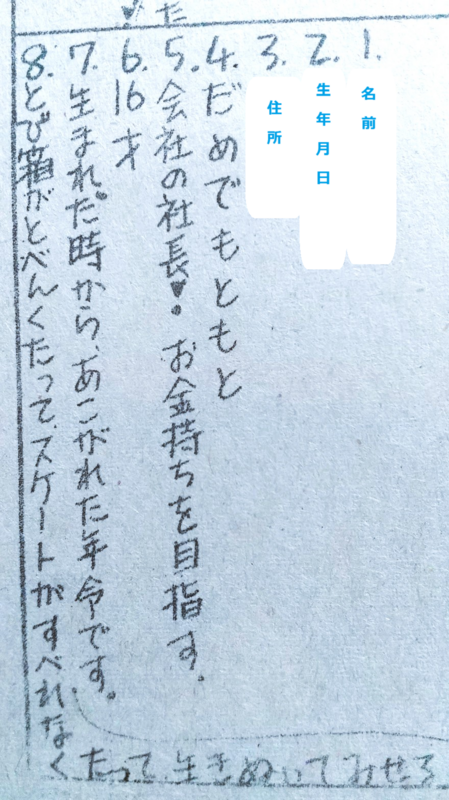 1. 名前
2. 生年月日
3. 住所
4. だめでもともと
5. 会社の社長♥。お金持ちを目指す。
6. 16才
7. 生まれた時から、あこがれた年令です。
8. とび箱がとべんくたって、スケートがすべれなく
たって生きぬいてみせろ
た